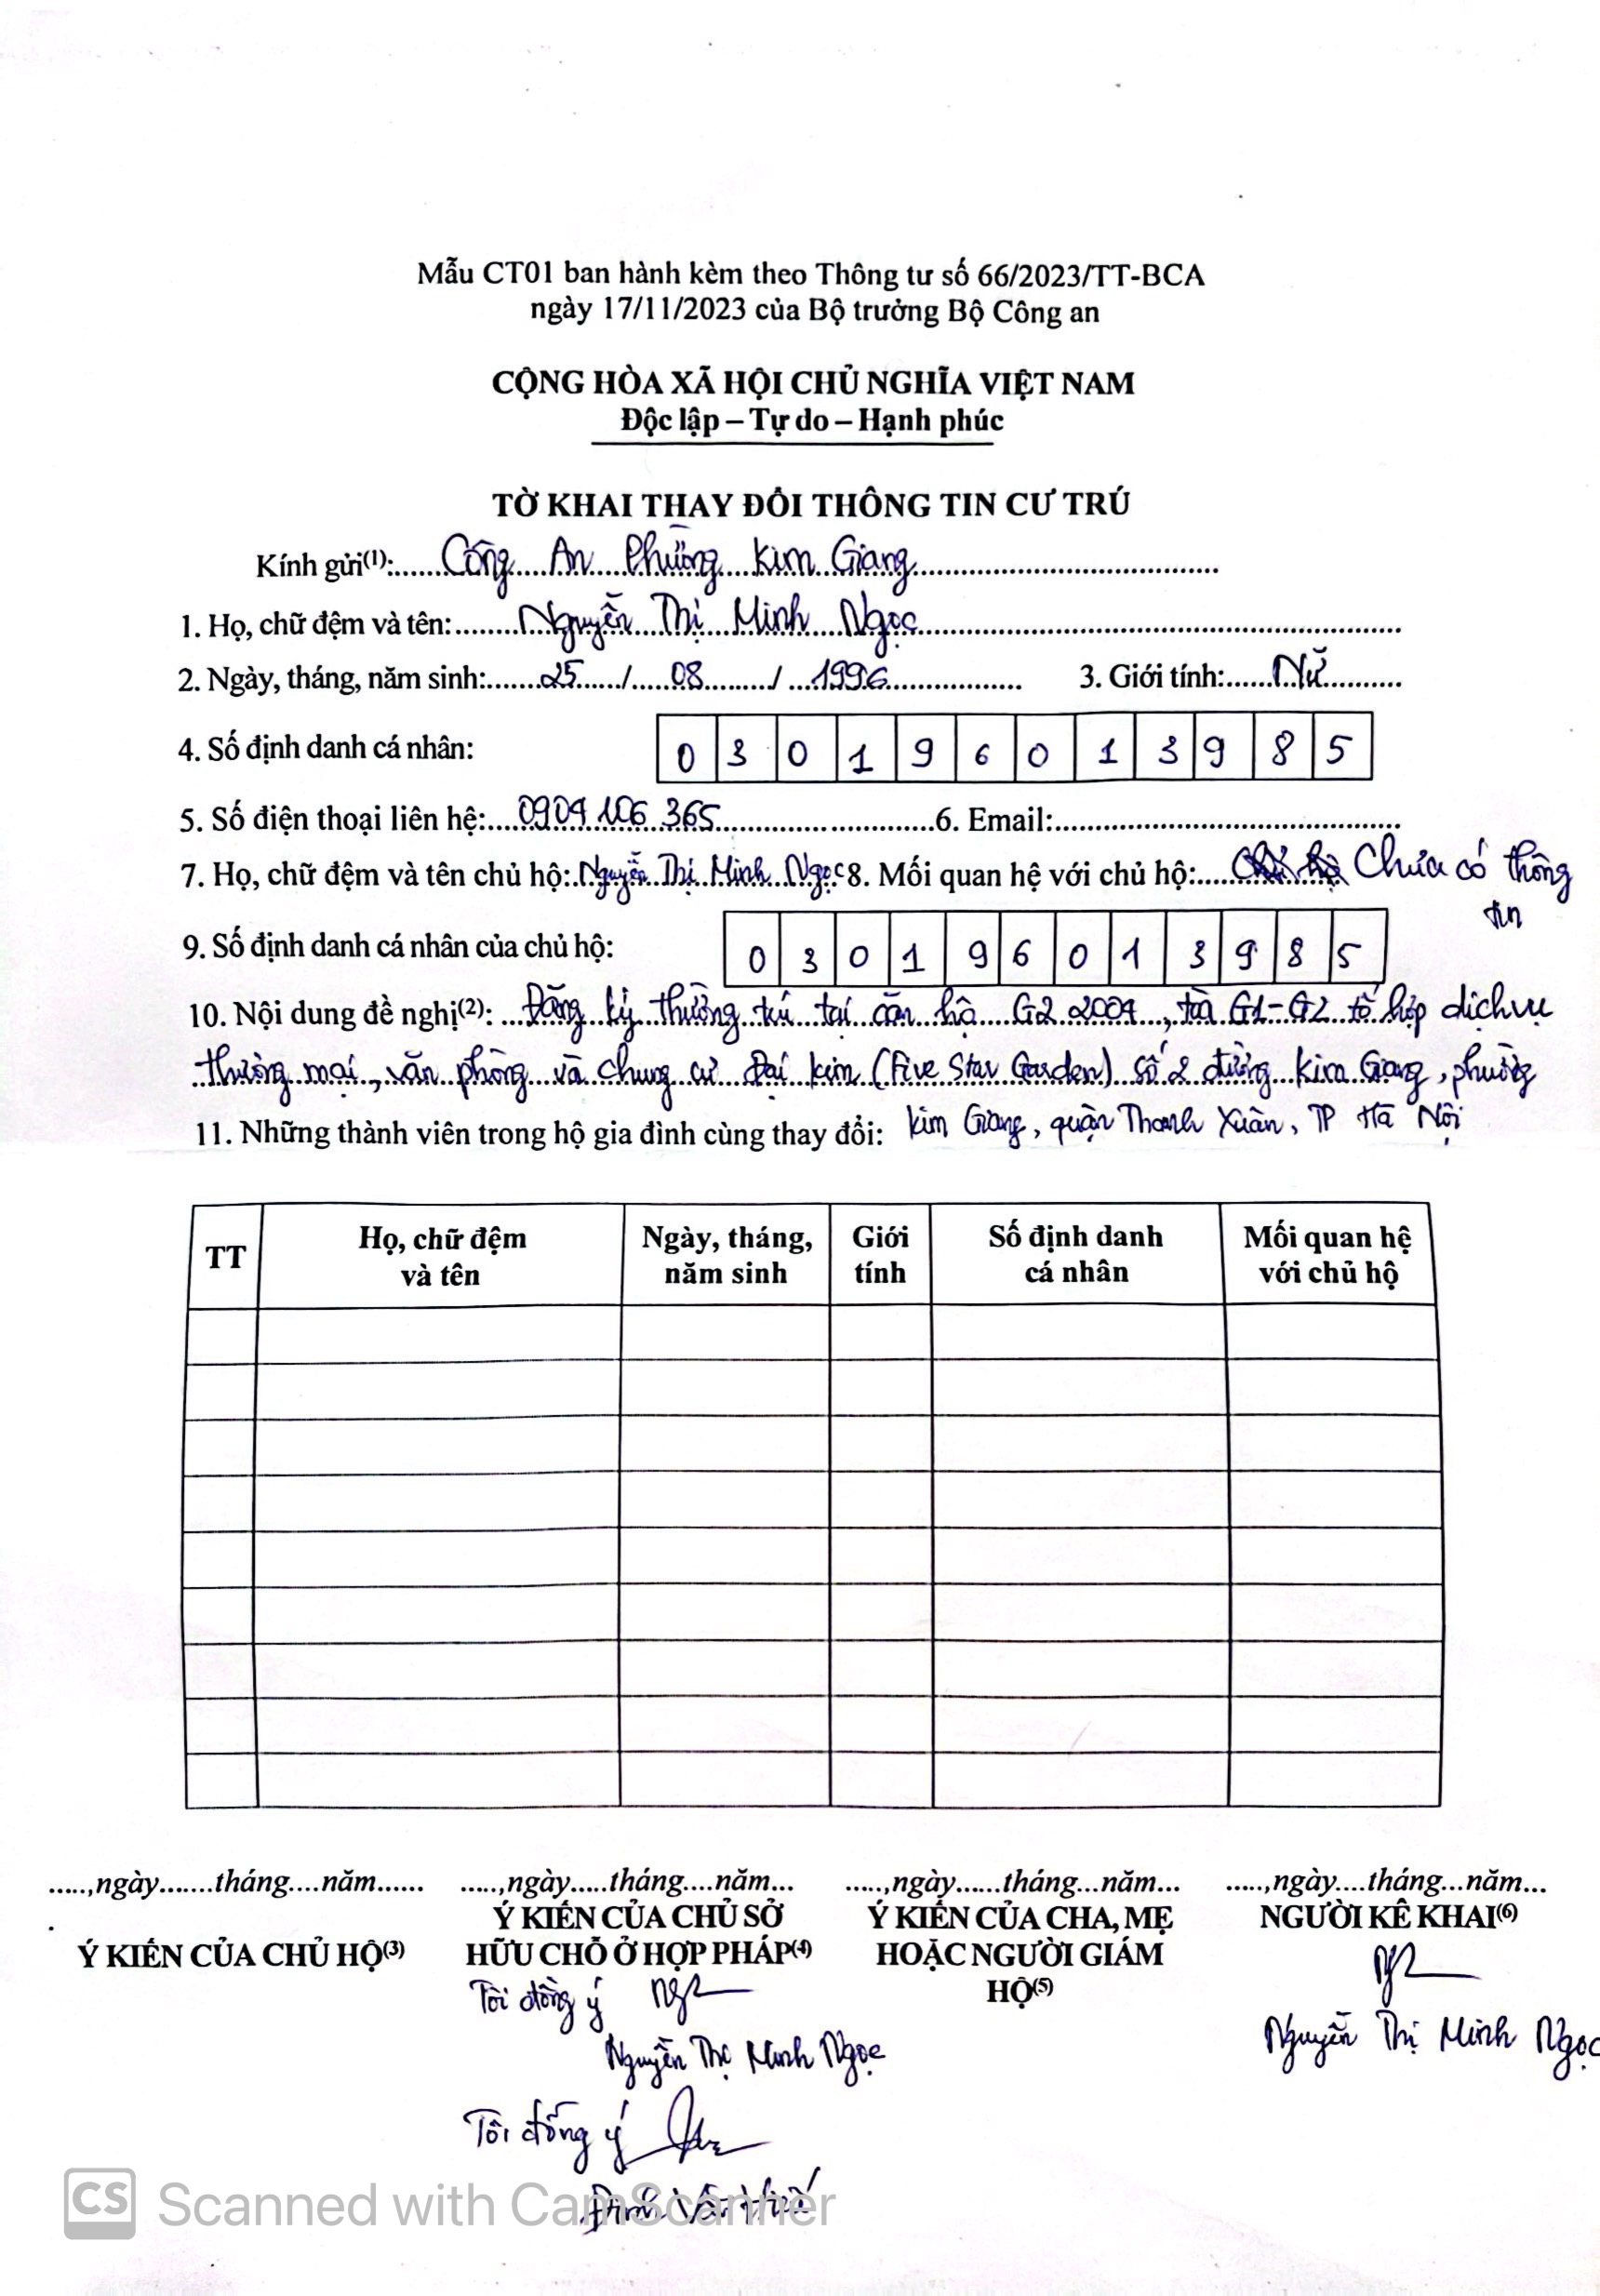 Mẫu CT01 ban hành kèm theo Thông tư số 66/2023/TT-BCA
ngày 17/11/2023 của Bộ trưởng Bộ Công an
CỘNG HÒA XÃ HỘI CHỦ NGHĨA VIỆT NAM
Độc lập – Tự do – Hạnh phúc
TỜ KHAI THAY ĐỔI THÔNG TIN CƯ TRÚ
Kính gửi(1): Công An Phường Kim Giang
1. Họ, chữ đệm và tên: Nguyễn Thị Minh Ngọc
2. Ngày, tháng, năm sinh: 25 / 08 / 1996 3. Giới tính: Nữ
4. Số định danh cá nhân: 0 3 0 1 9 6 0 1 3 9 8 5
5. Số điện thoại liên hệ: 0904 106 365 6. Email:
7. Họ, chữ đệm và tên chủ hộ: Nguyễn Thị Minh Ngọc 8. Mối quan hệ với chủ hộ: Chưa có thông
tin
9. Số định danh cá nhân của chủ hộ: 0 3 0 1 9 6 0 1 3 9 8 5
10. Nội dung đề nghị(2): Đăng ký thường trú tại căn hộ G2 2004, tòa G1-G2 tổ hợp dịch vụ
thương mại, văn phòng và chung cư Đại Kim (Five Star Garden) số 2 đường Kim Giang, phường
11. Những thành viên trong hộ gia đình cùng thay đổi: Kim Giang, quận Thanh Xuân, TP Hà Nội
TT Họ, chữ đệm và tên Ngày, tháng, năm sinh Giới tính Số định danh cá nhân Mối quan hệ với chủ hộ
.....,ngày.......tháng....năm...... .....,ngày.....tháng....năm... .....,ngày......tháng...năm... .....,ngày....tháng...năm...
Ý KIẾN CỦA CHỦ HỘ(3)
Ý KIẾN CỦA CHỦ SỞ
HỮU CHỖ Ở HỢP PHÁP(4)
Tôi đồng ý
Nguyễn Thị Minh Ngọc
Tôi đồng ý
Ý KIẾN CỦA CHA, MẸ
HOẶC NGƯỜI GIÁM
HỘ(5)
NGƯỜI KÊ KHAI(6)
Nguyễn Thị Minh Ngọc
CS Scanned with CamScanner